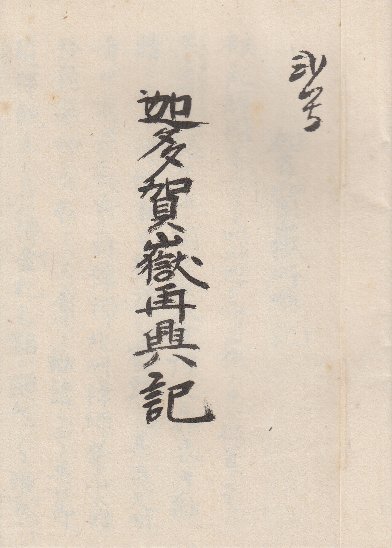 弐号
迦多賀嶽再興記